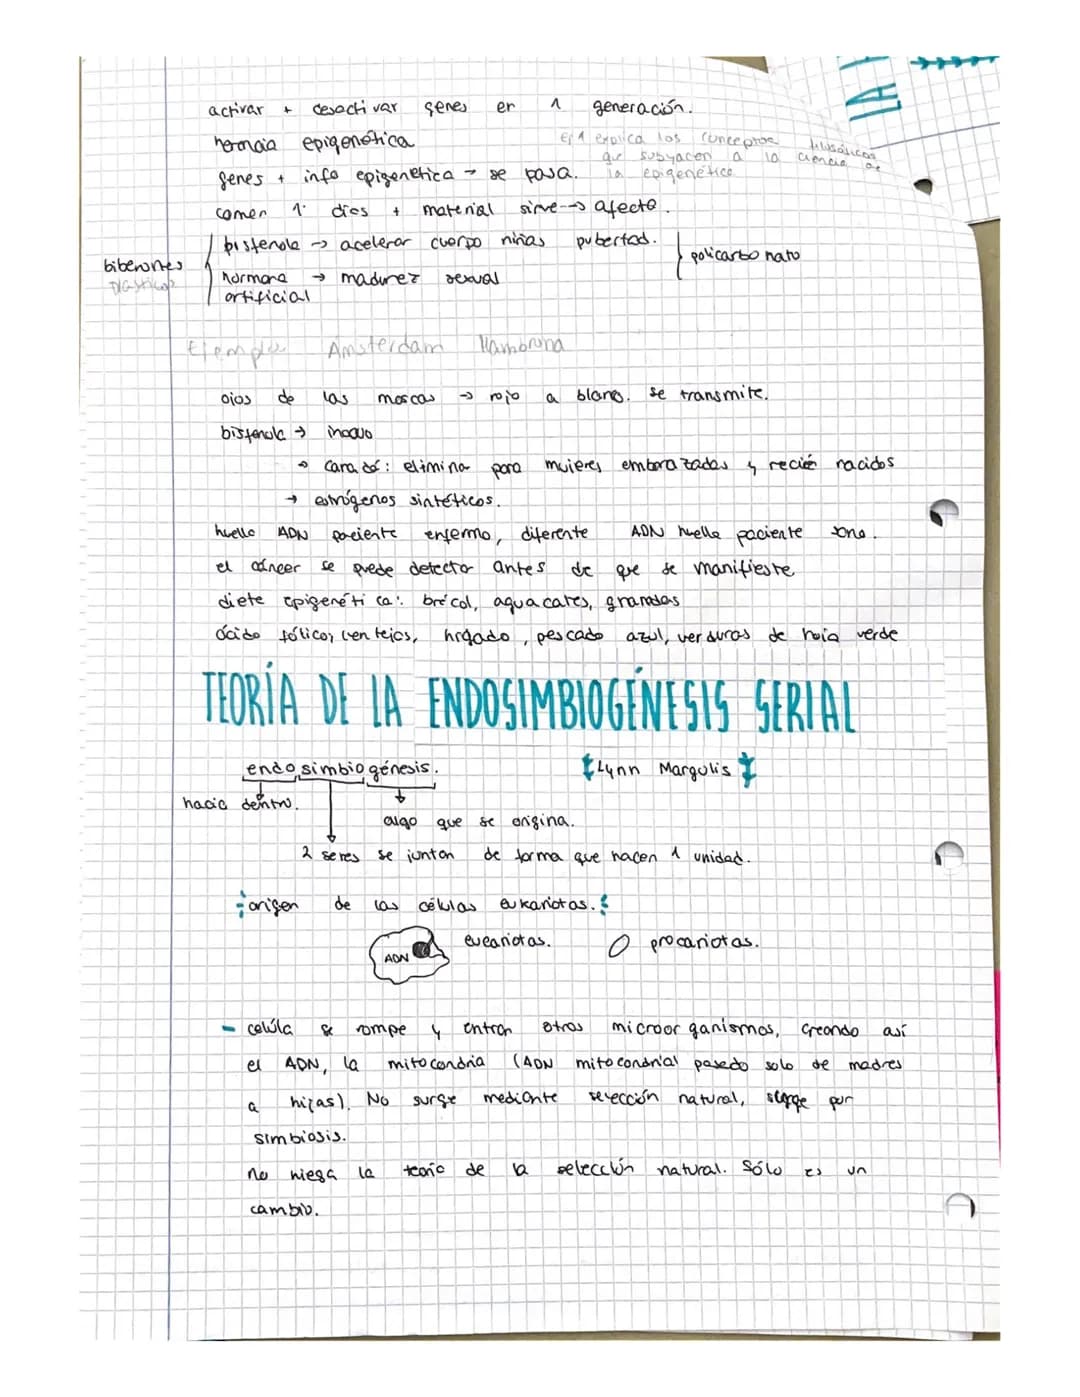 activar + desactivar genes en 1 generación.
herencia epigenética
Ej 1 explica los conceptos filosóficos
que subyacen a la ciencia de
la epigenética
genes + info epigenetica → se pasa.
comen 1· dios + material sirve → afecta.
biberones
plásticos
bisfenola → acelerar cuerpo niñas pubertad.
hormona → madurez sexual
artificial
policarbonato
Ejemplo Amsterdam Hambruna
ojos de las moscas → rojo a blanc. se transmite.
bisfenola → inocuo
→ Canadá: elimina para mujeres embarazadas y recién nacidos
→ estrógenos sintéticos.
huella ADN paciente enfermo, diferente ADN huella paciente sano.
el cáncer se puede detectar antes de que se manifieste
dieta epigenética: brécol, aguacates, granadas
ácido fólico, lentejas, hígado, pescado azul, verduras de hoja verde
TEORÍA DE LA ENDOSIMBIOGÉNESIS SERIAL
endosimbiogénesis.
Lynn Margulis
hacia dentro.
algo que se origina.
2 seres se juntan de forma que hacen 1 unidad.
origen de las células eukariotas.
ADN
eucariotas.
procariotas.
- celúla se rompe y entran otros microorganismos, creando así
el ADN, la mitocondria (ADN mitocondrial pasado solo de madres
a hijas). No surge mediante selección natural, surge por
simbiosis.
no niega la teoría de la selección natural. Sólo es un
cambio.